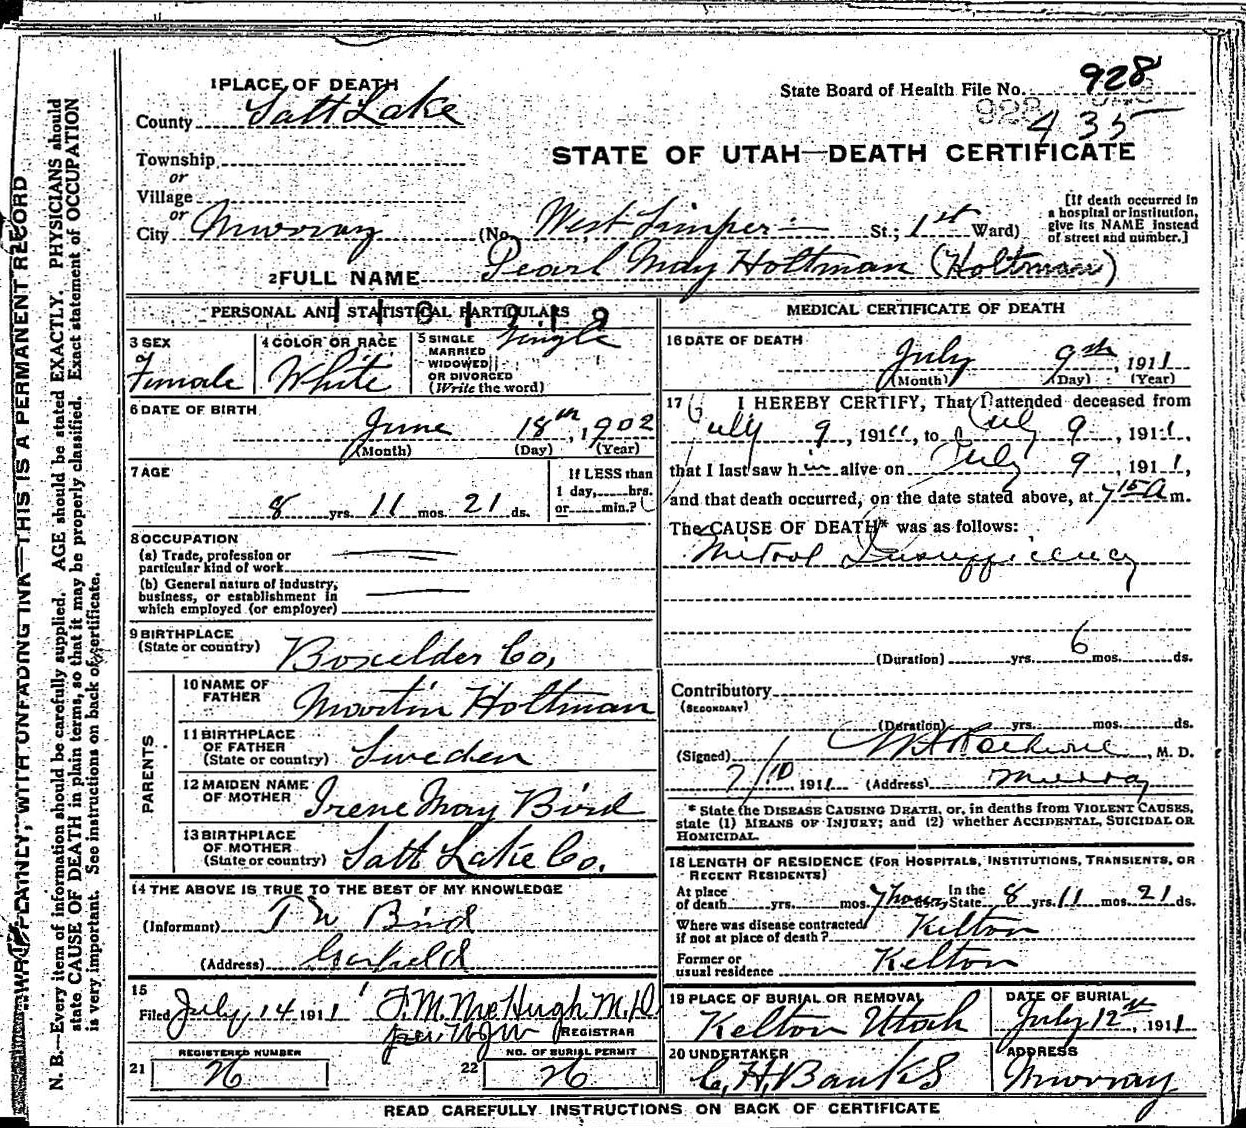 1 PLACE OF DEATH
County Salt Lake
State Board of Health File No. 928
928
435
Township
or
Village
or
City Murray
STATE OF UTAH—DEATH CERTIFICATE
(No. West Simper St.; 1st Ward)
[If death occurred in
a hospital or institution,
give its NAME instead
of street and number.]
2 FULL NAME Pearl May Holtman (Holtman)
PERSONAL AND STATISTICAL PARTICULARS
3 SEX
Female
4 COLOR OR RACE
White
5 SINGLE
MARRIED
WIDOWED
OR DIVORCED
(Write the word)
Single
6 DATE OF BIRTH
June 18th, 1902
(Month) (Day) (Year)
7 AGE
8 yrs. 11 mos. 21 ds.
If LESS than
1 day, hrs.
or min.?
8 OCCUPATION
(a) Trade, profession or
particular kind of work
(b) General nature of industry,
business, or establishment in
which employed (or employer)
9 BIRTHPLACE
(State or country) Boxelder Co,
PARENTS
10 NAME OF
FATHER Martin Holtman
11 BIRTHPLACE
OF FATHER
(State or country) Sweden
12 MAIDEN NAME
OF MOTHER Irene May Bird
13 BIRTHPLACE
OF MOTHER
(State or country) Salt Lake Co.
14 THE ABOVE IS TRUE TO THE BEST OF MY KNOWLEDGE
(Informant) T W Bird
(Address) Garfield
15
Filed July 14 1911 F. M. McHugh M.D
per WJW REGISTRAR
REGISTERED NUMBER
21 26
NO. OF BURIAL PERMIT
22 26
MEDICAL CERTIFICATE OF DEATH
16 DATE OF DEATH
July 9th, 1911
(Month) (Day) (Year)
17 I HEREBY CERTIFY, That I attended deceased from
July 9, 1911, to July 9, 1911,
that I last saw h alive on July 9, 1911,
and that death occurred, on the date stated above, at 7 15 A m.
The CAUSE OF DEATH* was as follows:
Mitral Insufficiency
(Duration) yrs. 6 mos. ds.
Contributory
(SECONDARY)
(Duration) yrs. mos. ds.
(Signed) M. D.
7/10, 1911 (Address) Murray
* State the DISEASE CAUSING DEATH, or, in deaths from VIOLENT CAUSES,
state (1) MEANS OF INJURY; and (2) whether ACCIDENTAL, SUICIDAL OR
HOMICIDAL.
18 LENGTH OF RESIDENCE (FOR HOSPITALS, INSTITUTIONS, TRANSIENTS, OR
RECENT RESIDENTS)
At place
of death yrs. mos. 7 hours In the
State 8 yrs. 11 mos. 21 ds.
Where was disease contracted
if not at place of death? Kelton
Former or
usual residence Kelton
19 PLACE OF BURIAL OR REMOVAL
Kelton Utah
DATE OF BURIAL
July 12th, 1911
20 UNDERTAKER
C. H. Banks
ADDRESS
Murray
READ CAREFULLY INSTRUCTIONS ON BACK OF CERTIFICATE
WRITE PLAINLY, WITH UNFADING INK—THIS IS A PERMANENT RECORD
N. B.—Every item of information should be carefully supplied. AGE should be stated EXACTLY. PHYSICIANS should
state CAUSE OF DEATH in plain terms, so that it may be properly classified. Exact statement of OCCUPATION
is very important. See instructions on back of certificate.